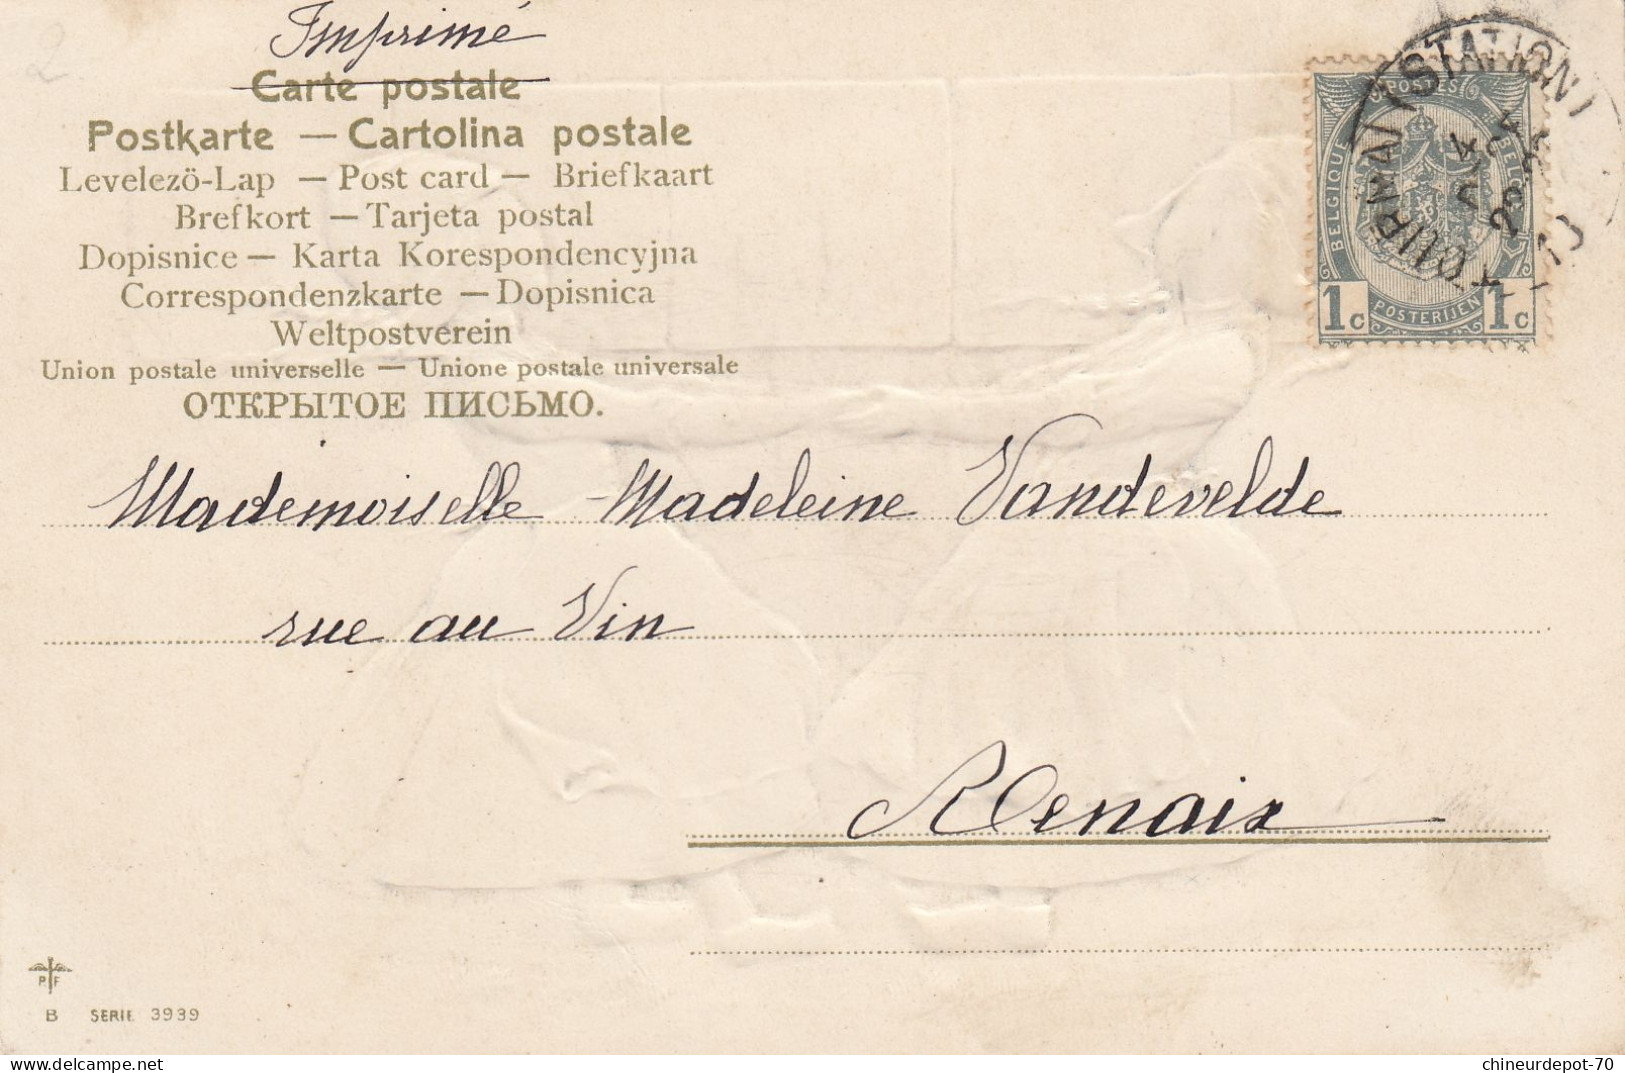 2
Imprimé
Carte postale
Postkarte — Cartolina postale
Levelezö-Lap — Post card — Briefkaart
Brefkort — Tarjeta postal
Dopisnice — Karta Korespondencyjna
Correspondenzkarte — Dopisnica
Weltpostverein
Union postale universelle — Unione postale universale
ОТКРЫТОЕ ПИСЬМО.
POSTES
BELGIQUE
BELGIË
POSTERIJEN
1c 1c
TOURNAI (STATION)
Mademoiselle Madeleine Vandevelde
rue au Vin
Renaix
P F
B SERIE 3939
delcampe.net
chineurdepot-70